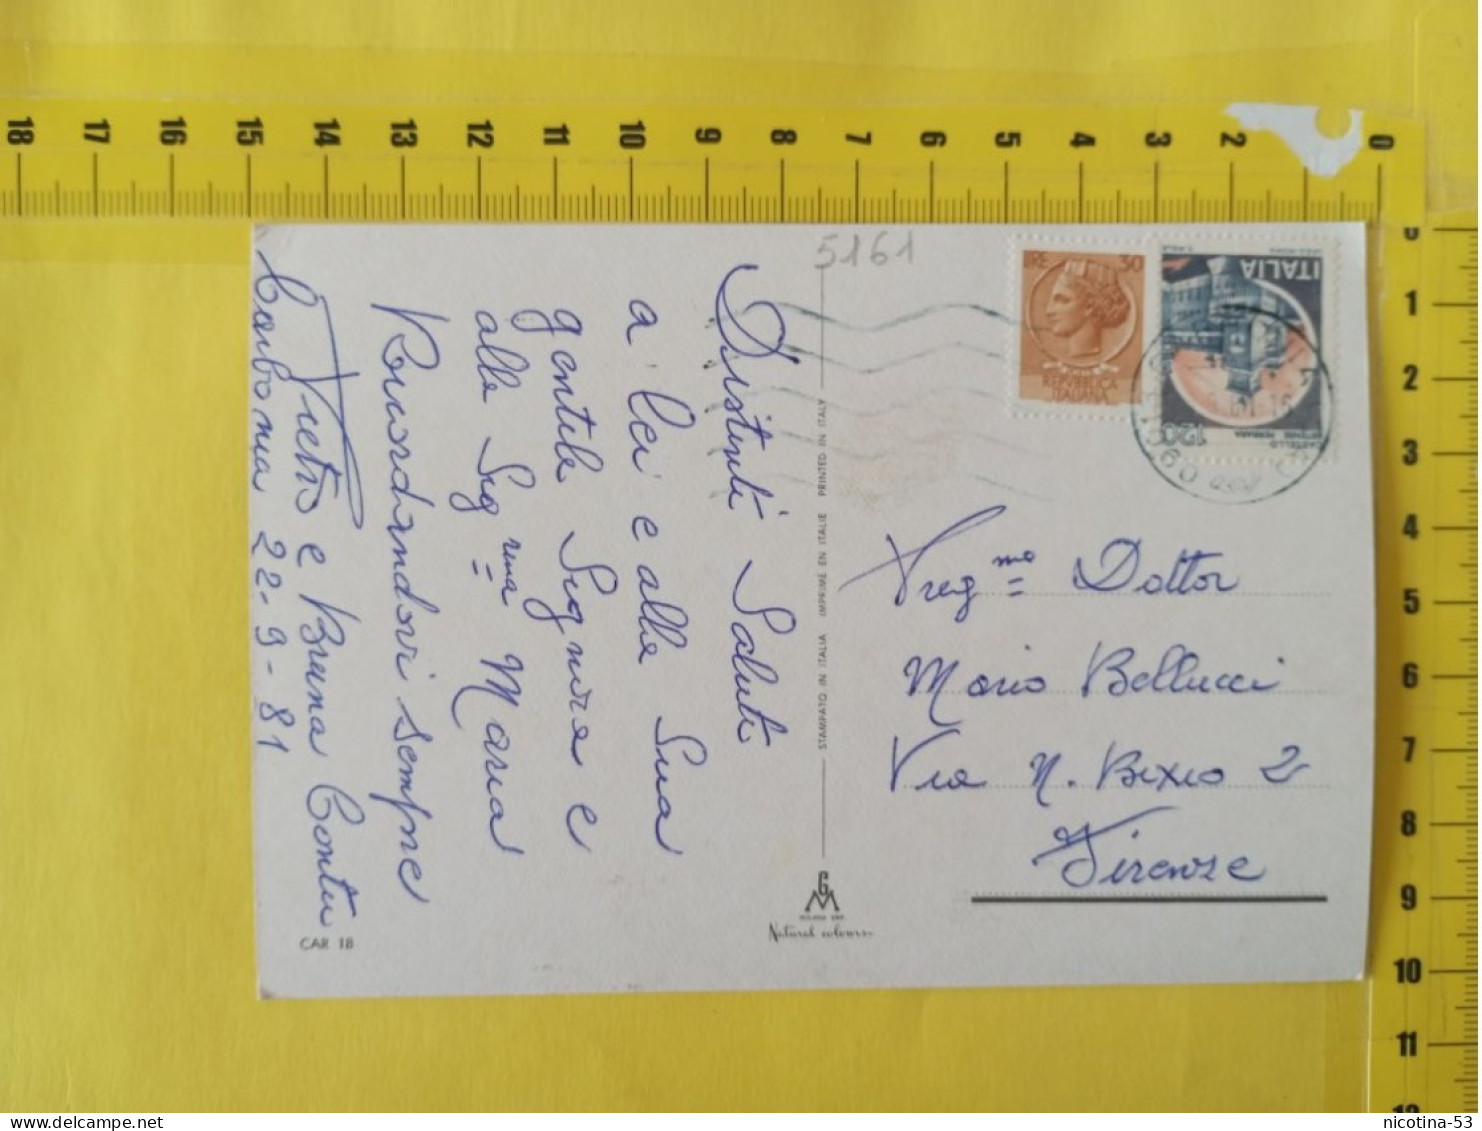 18 17 16 15 14 13 12 11 10 9 8 7 6 5 4 3 2 0
0
1
2
3
4
5
6
7
8
9
10
11
12
5161
LIRE 30
REPUBBLICA
ITALIANA
ITALIA
120
CASTELLO
ESTENSE FERRARA
Distinti Saluti
a lei e alla Sua
gentile Signora e
alla Sig.rina Maria
Ricordandovi sempre
Pietro e Bruna Contu
Carbonia 22-9-81
STAMPATO IN ITALIA IMPRIMÉ EN ITALIE PRINTED IN ITALY
Preg.mo Dottor
Mario Bellucci
Via N. Bixio 2
Firenze
GM
Natural colours
CAR 18
nicotina-53